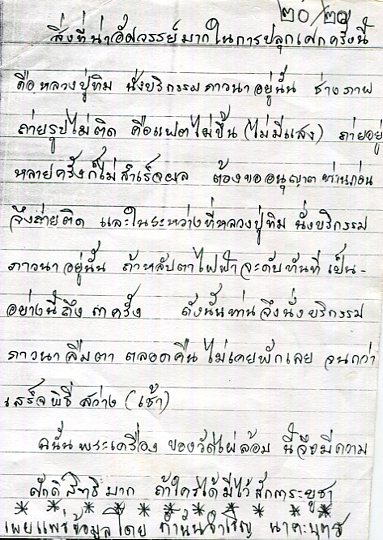 ๒๐/๒๘
สิ่งที่น่าอัศจรรย์มากในการปลุกเศกครั้งนี้
คือ หลวงปู่ทิม นั่งบริกรรม ภาวนาอยู่นั้น ช่างภาพ
ถ่ายรูปไม่ติด คือแฟตไม่ขึ้น (ไม่มีแสง) ถ่ายอยู่
หลายครั้งก็ไม่สำเร็จผล ต้องขออนุญาตท่านก่อน
จึงถ่ายติด และในระหว่างที่หลวงปู่ทิม นั่งบริกรรม
ภาวนาอยู่นั้น ถ้าหลับตาไฟฟ้าจะดับทันที เป็น-
อย่างนี้ถึง ๓ ครั้ง ดังนั้นท่านจึงนั่งบริกรรม
ภาวนาลืมตา ตลอดคืน ไม่เคยพักเลย จนกว่า
เสร็จพิธี สว่าง (เช้า)
ฉนั้น พระเครื่อง ของวัดไผ่ล้อม นี้จึงมีความ
ศักดิ์สิทธิ์มาก ถ้าใครได้มีไว้สักการะบูชา
* * * * * * * * * *
เผยแพร่ข้อมูลโดย กำนันจำเริญ นาคะบุตร